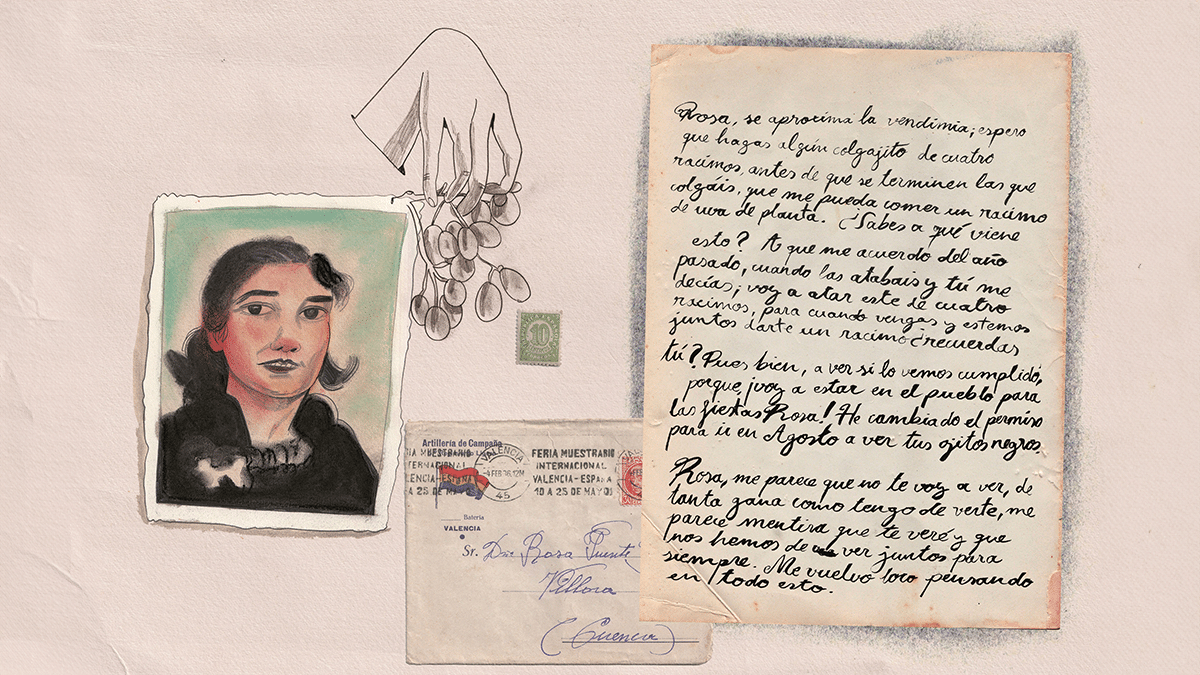 Rosa, se aprocima la vendimia; espero
que hagas algún colgajito de cuatro
racimos, antes de que se terminen las que
colgáis, que me pueda comer un racimo
de uva de planta. ¿Sabes a qué viene
esto? A que me acuerdo del año
pasado, cuando las atabais y tú me
decías; voy a atar este de cuatro
racimos, para cuando vengas y estemos
juntos darte un racimo ¿recuerdas
tú? Pues bien, a ver si lo vemos cumplido,
porque, ¡voy a estar en el pueblo para
las fiestas Rosa! He cambiado el permiso
para ir en Agosto a ver tus ojitos negros.
Rosa, me parece que no te voy a ver, de
tanta gana como tengo de verte, me
parece mentira que te veré y que
nos hemos de ver juntos para
siempre. Me vuelvo loco pensando
en todo esto.
10
Artillería de Campaña
Batería
VALENCIA
VALENCIA
4 FEB 36.12M
45
MUESTRARIO
INTERNACIONAL
VALENCIA-ESPAÑA
A 25 DE MAYO
FERIA MUESTRARIO
INTERNACIONAL
VALENCIA-ESPAÑA
10 A 25 DE MAYO
Sr. Dña Rosa Puente
Villora
(Cuenca)